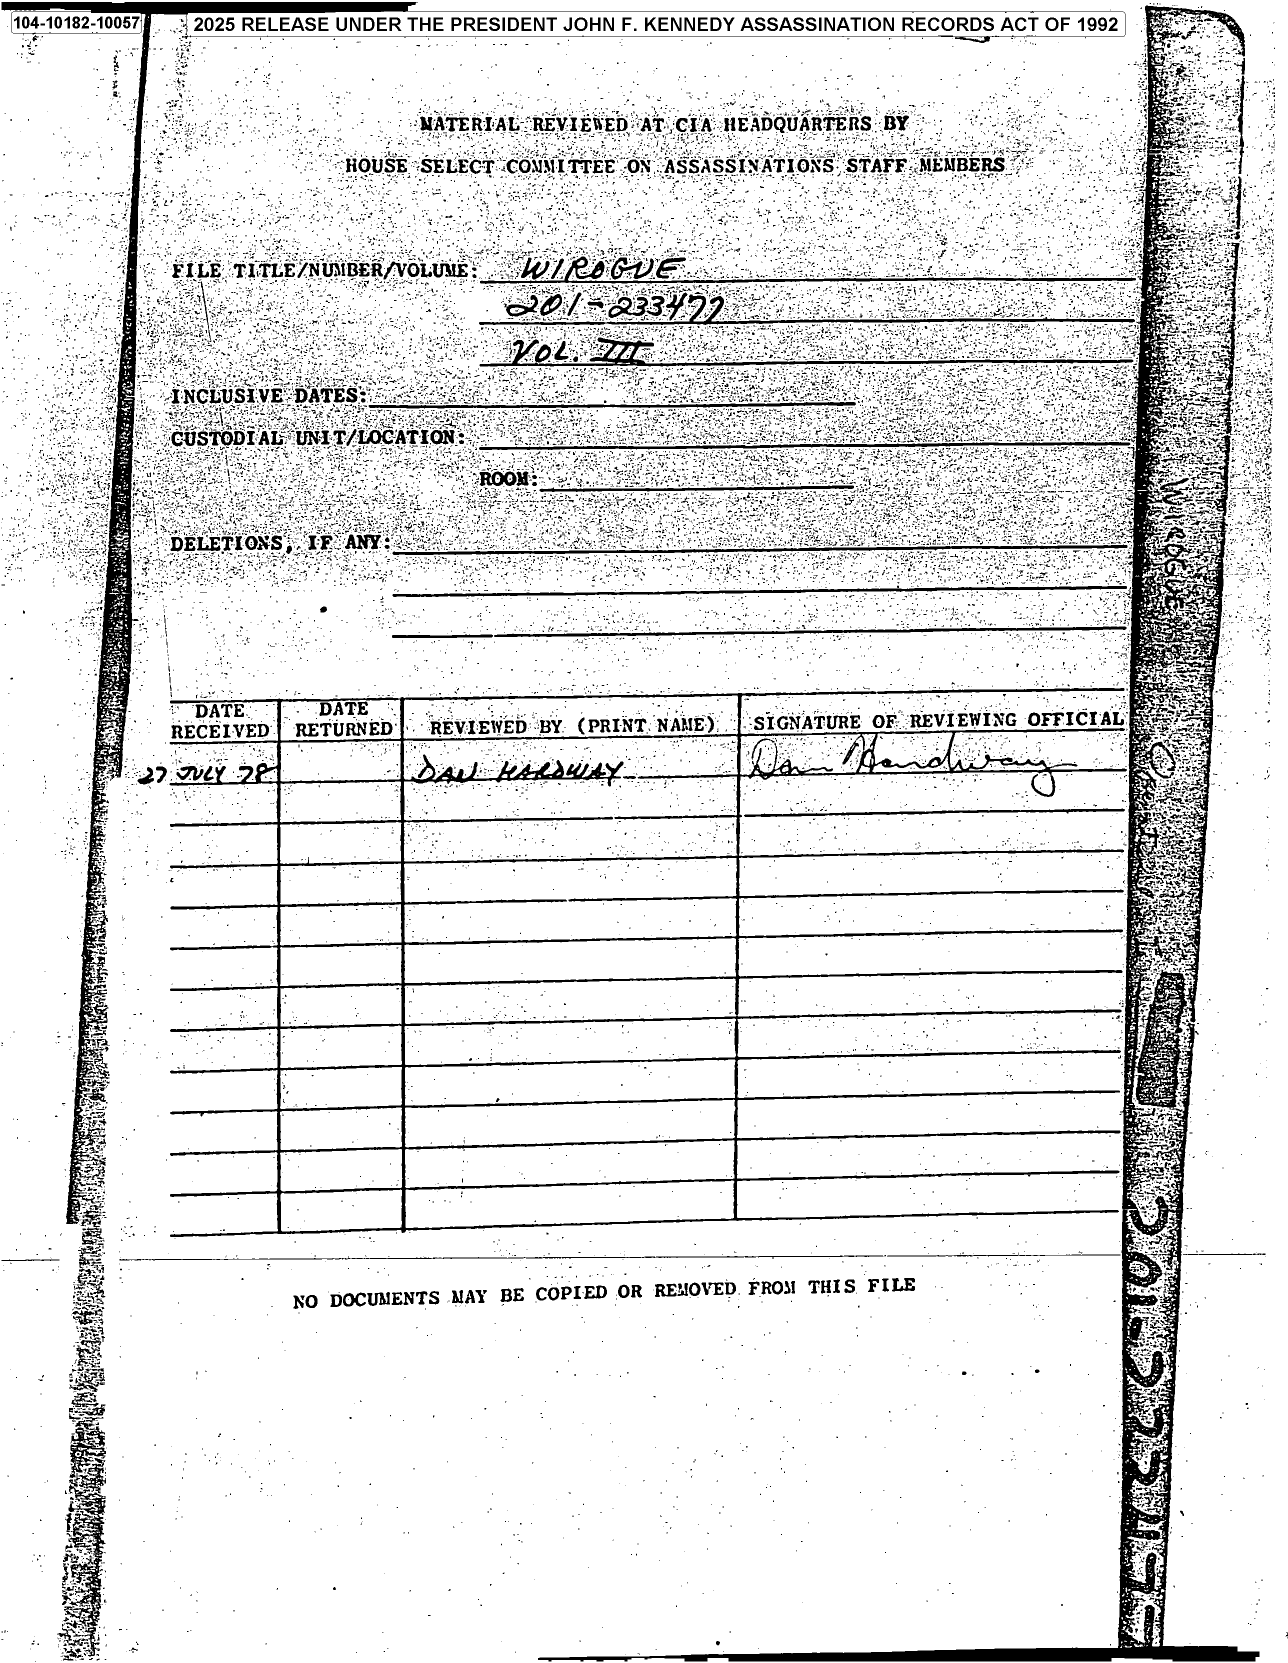 104-10182-10057
2025 RELEASE UNDER THE PRESIDENT JOHN F. KENNEDY ASSASSINATION RECORDS ACT OF 1992
MATERIAL REVIEWED AT CIA HEADQUARTERS BY
HOUSE SELECT COMMITTEE ON ASSASSINATIONS STAFF MEMBERS
FILE TITLE/NUMBER/VOLUME: WIROGUE
201-233477
VOL. III
INCLUSIVE DATES:
CUSTODIAL UNIT/LOCATION:
ROOM:
DELETIONS, IF ANY:
DATE RECEIVED
DATE RETURNED
REVIEWED BY (PRINT NAME)
SIGNATURE OF REVIEWING OFFICIAL
27 JULY 78 DAN HARDWAY Dan Hardway
NO DOCUMENTS MAY BE COPIED OR REMOVED FROM THIS FILE
WIROGUE